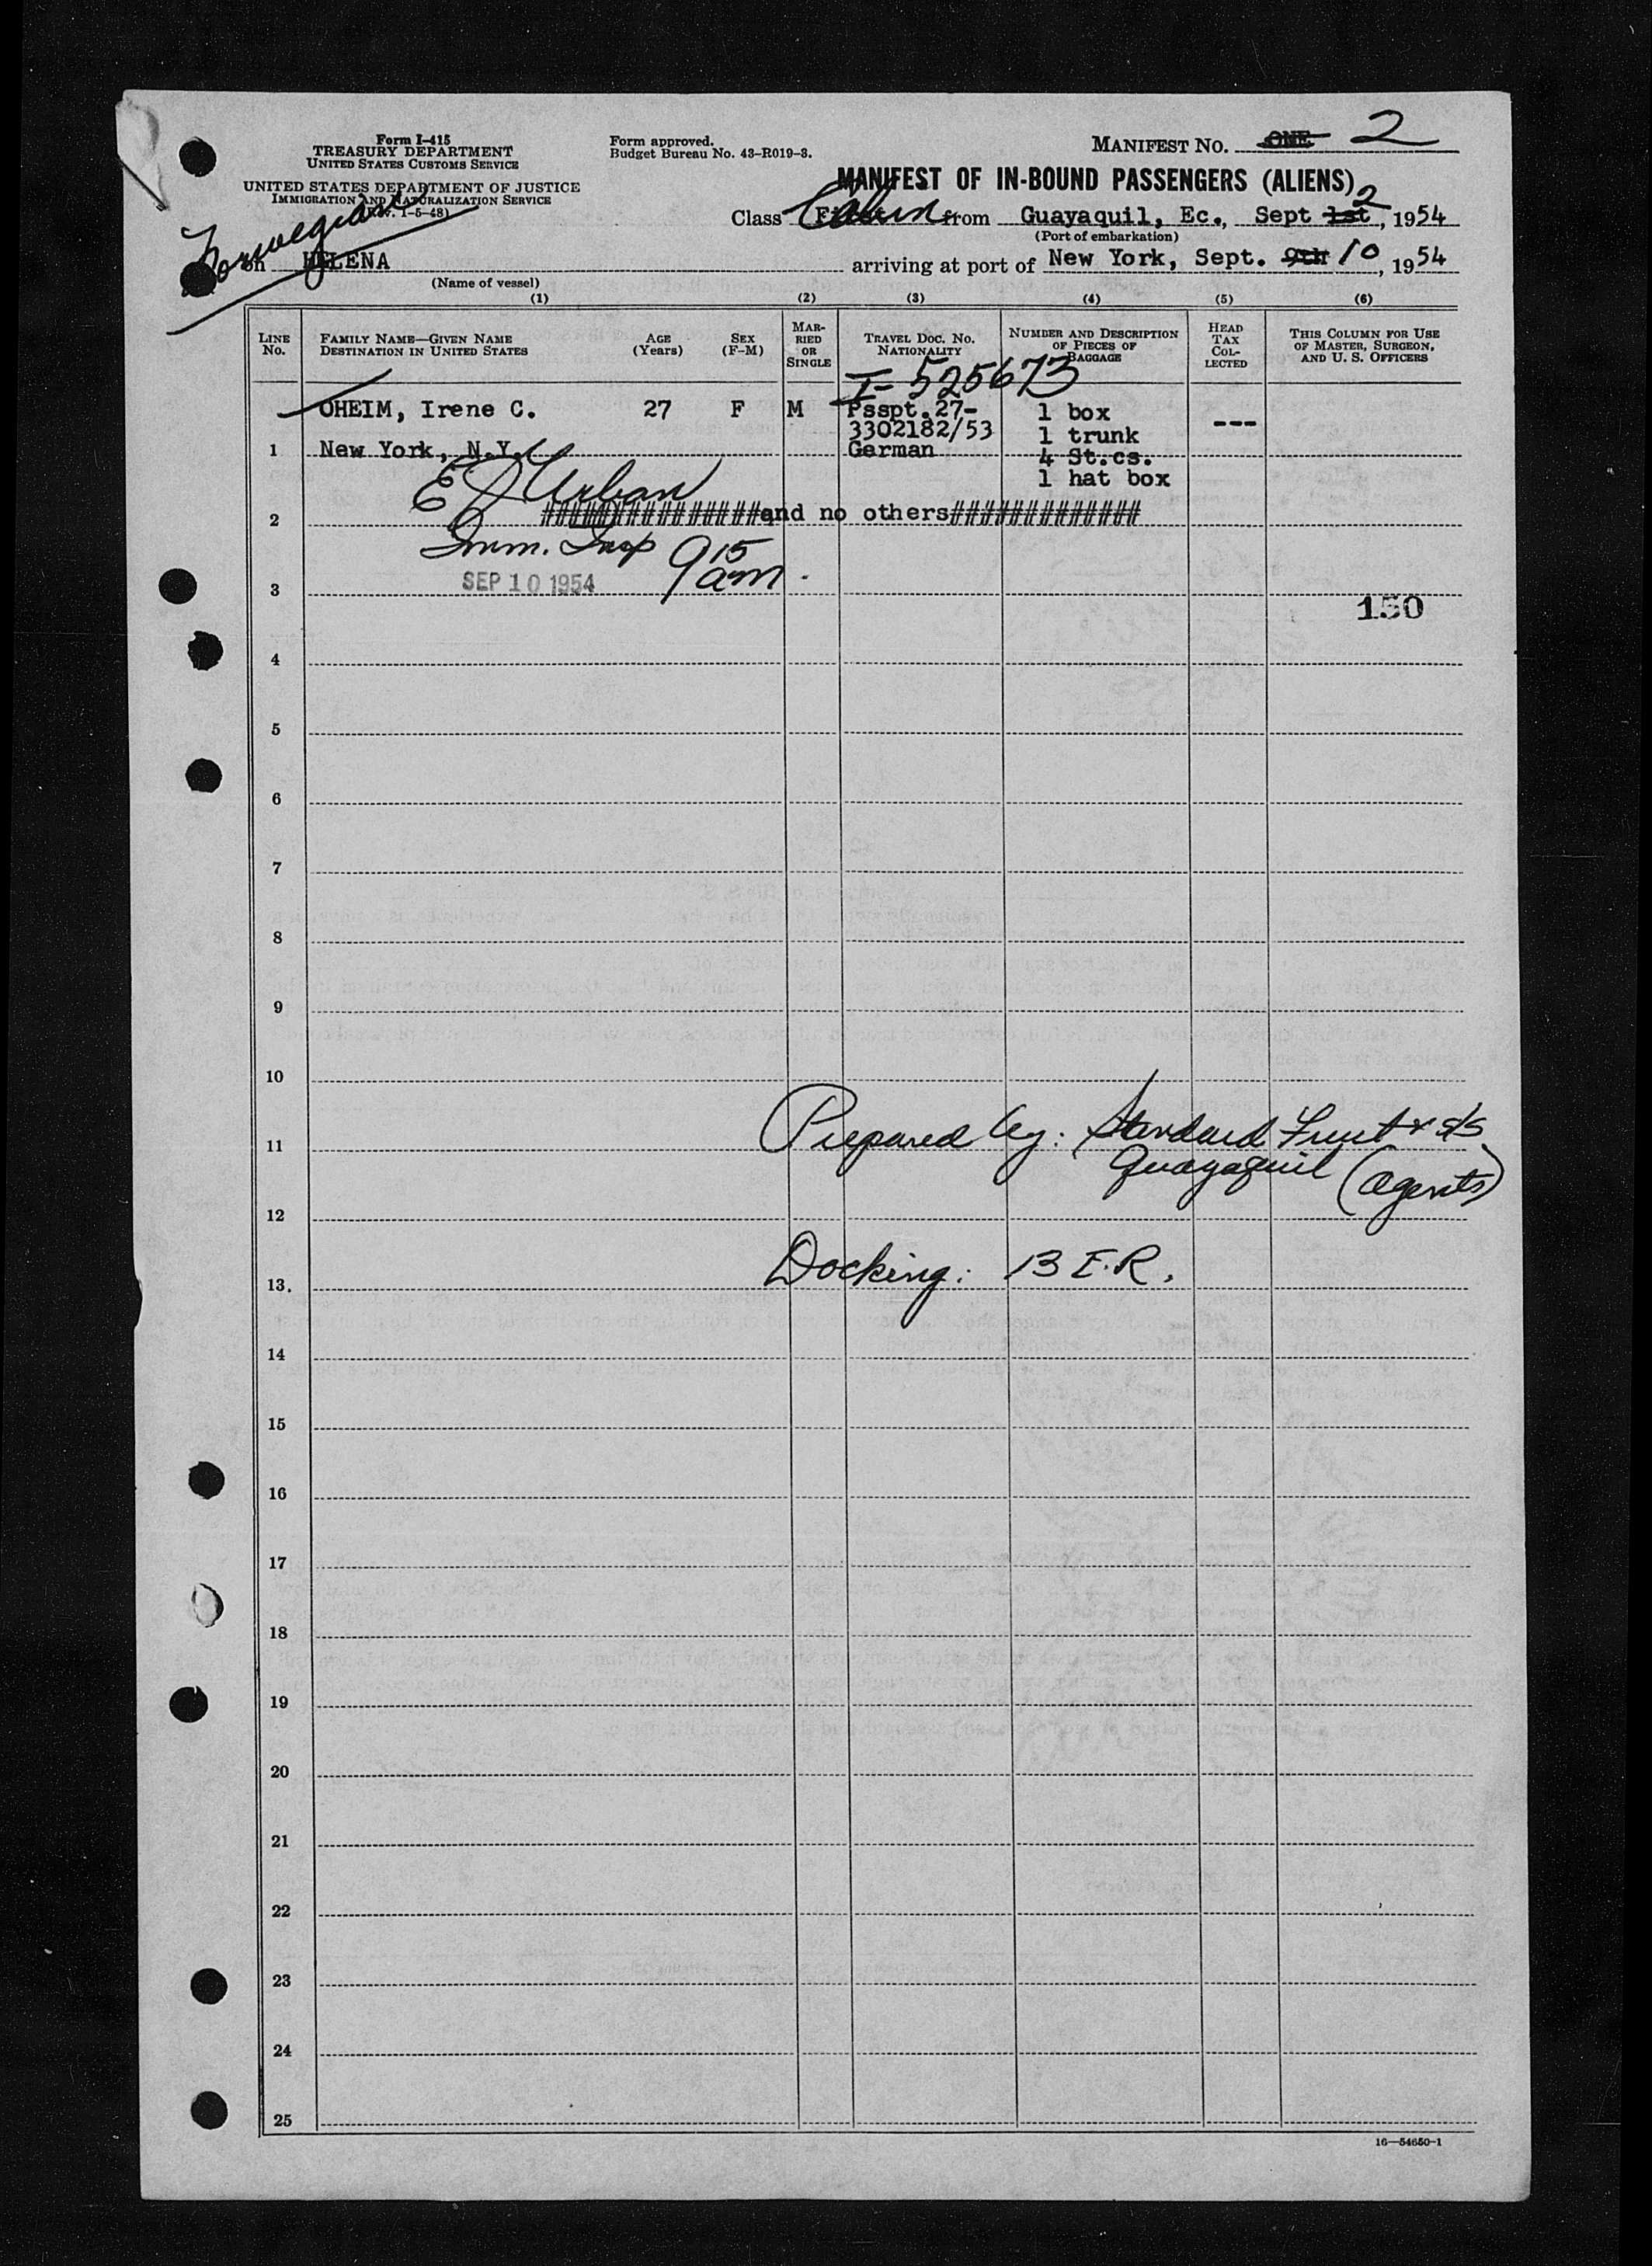 Form I-415
TREASURY DEPARTMENT
UNITED STATES CUSTOMS SERVICE
UNITED STATES DEPARTMENT OF JUSTICE
IMMIGRATION AND NATURALIZATION SERVICE
(Rev. 1-5-48)
Form approved.
Budget Bureau No. 43-R019-3.
MANIFEST NO. ONE 2
MANIFEST OF IN-BOUND PASSENGERS (ALIENS)
Class Cabin from Guayaquil, Ec., Sept 1st 2, 1954
(Port of embarkation)
Norwegian
on HELENA arriving at port of New York, Sept. 9th 10, 1954
(Name of vessel)
(1) (2) (3) (4) (5) (6)
LINE No. FAMILY NAME—GIVEN NAME DESTINATION IN UNITED STATES AGE (Years) SEX (F-M) MARRIED OR SINGLE TRAVEL DOC. NO. NATIONALITY NUMBER AND DESCRIPTION OF PIECES OF BAGGAGE HEAD TAX COLLECTED THIS COLUMN FOR USE OF MASTER, SURGEON, AND U. S. OFFICERS
I-525673
OHEIM, Irene C. 27 F M Psspt.27- 1 box ---
3302182/53 1 trunk
1 New York, N.Y. German 4 St.cs.
1 hat box
Urban
2 ###############and no others#############
Imm. Insp 9 15 am.
3 SEP 10 1954
150
4
5
6
7
8
9
10
11 Prepared by: Standard Fruit & S/S
Guayaquil (Agents)
12
13. Docking: 13 E.R.
14
15
16
17
18
19
20
21
22
23
24
25
16—54650-1